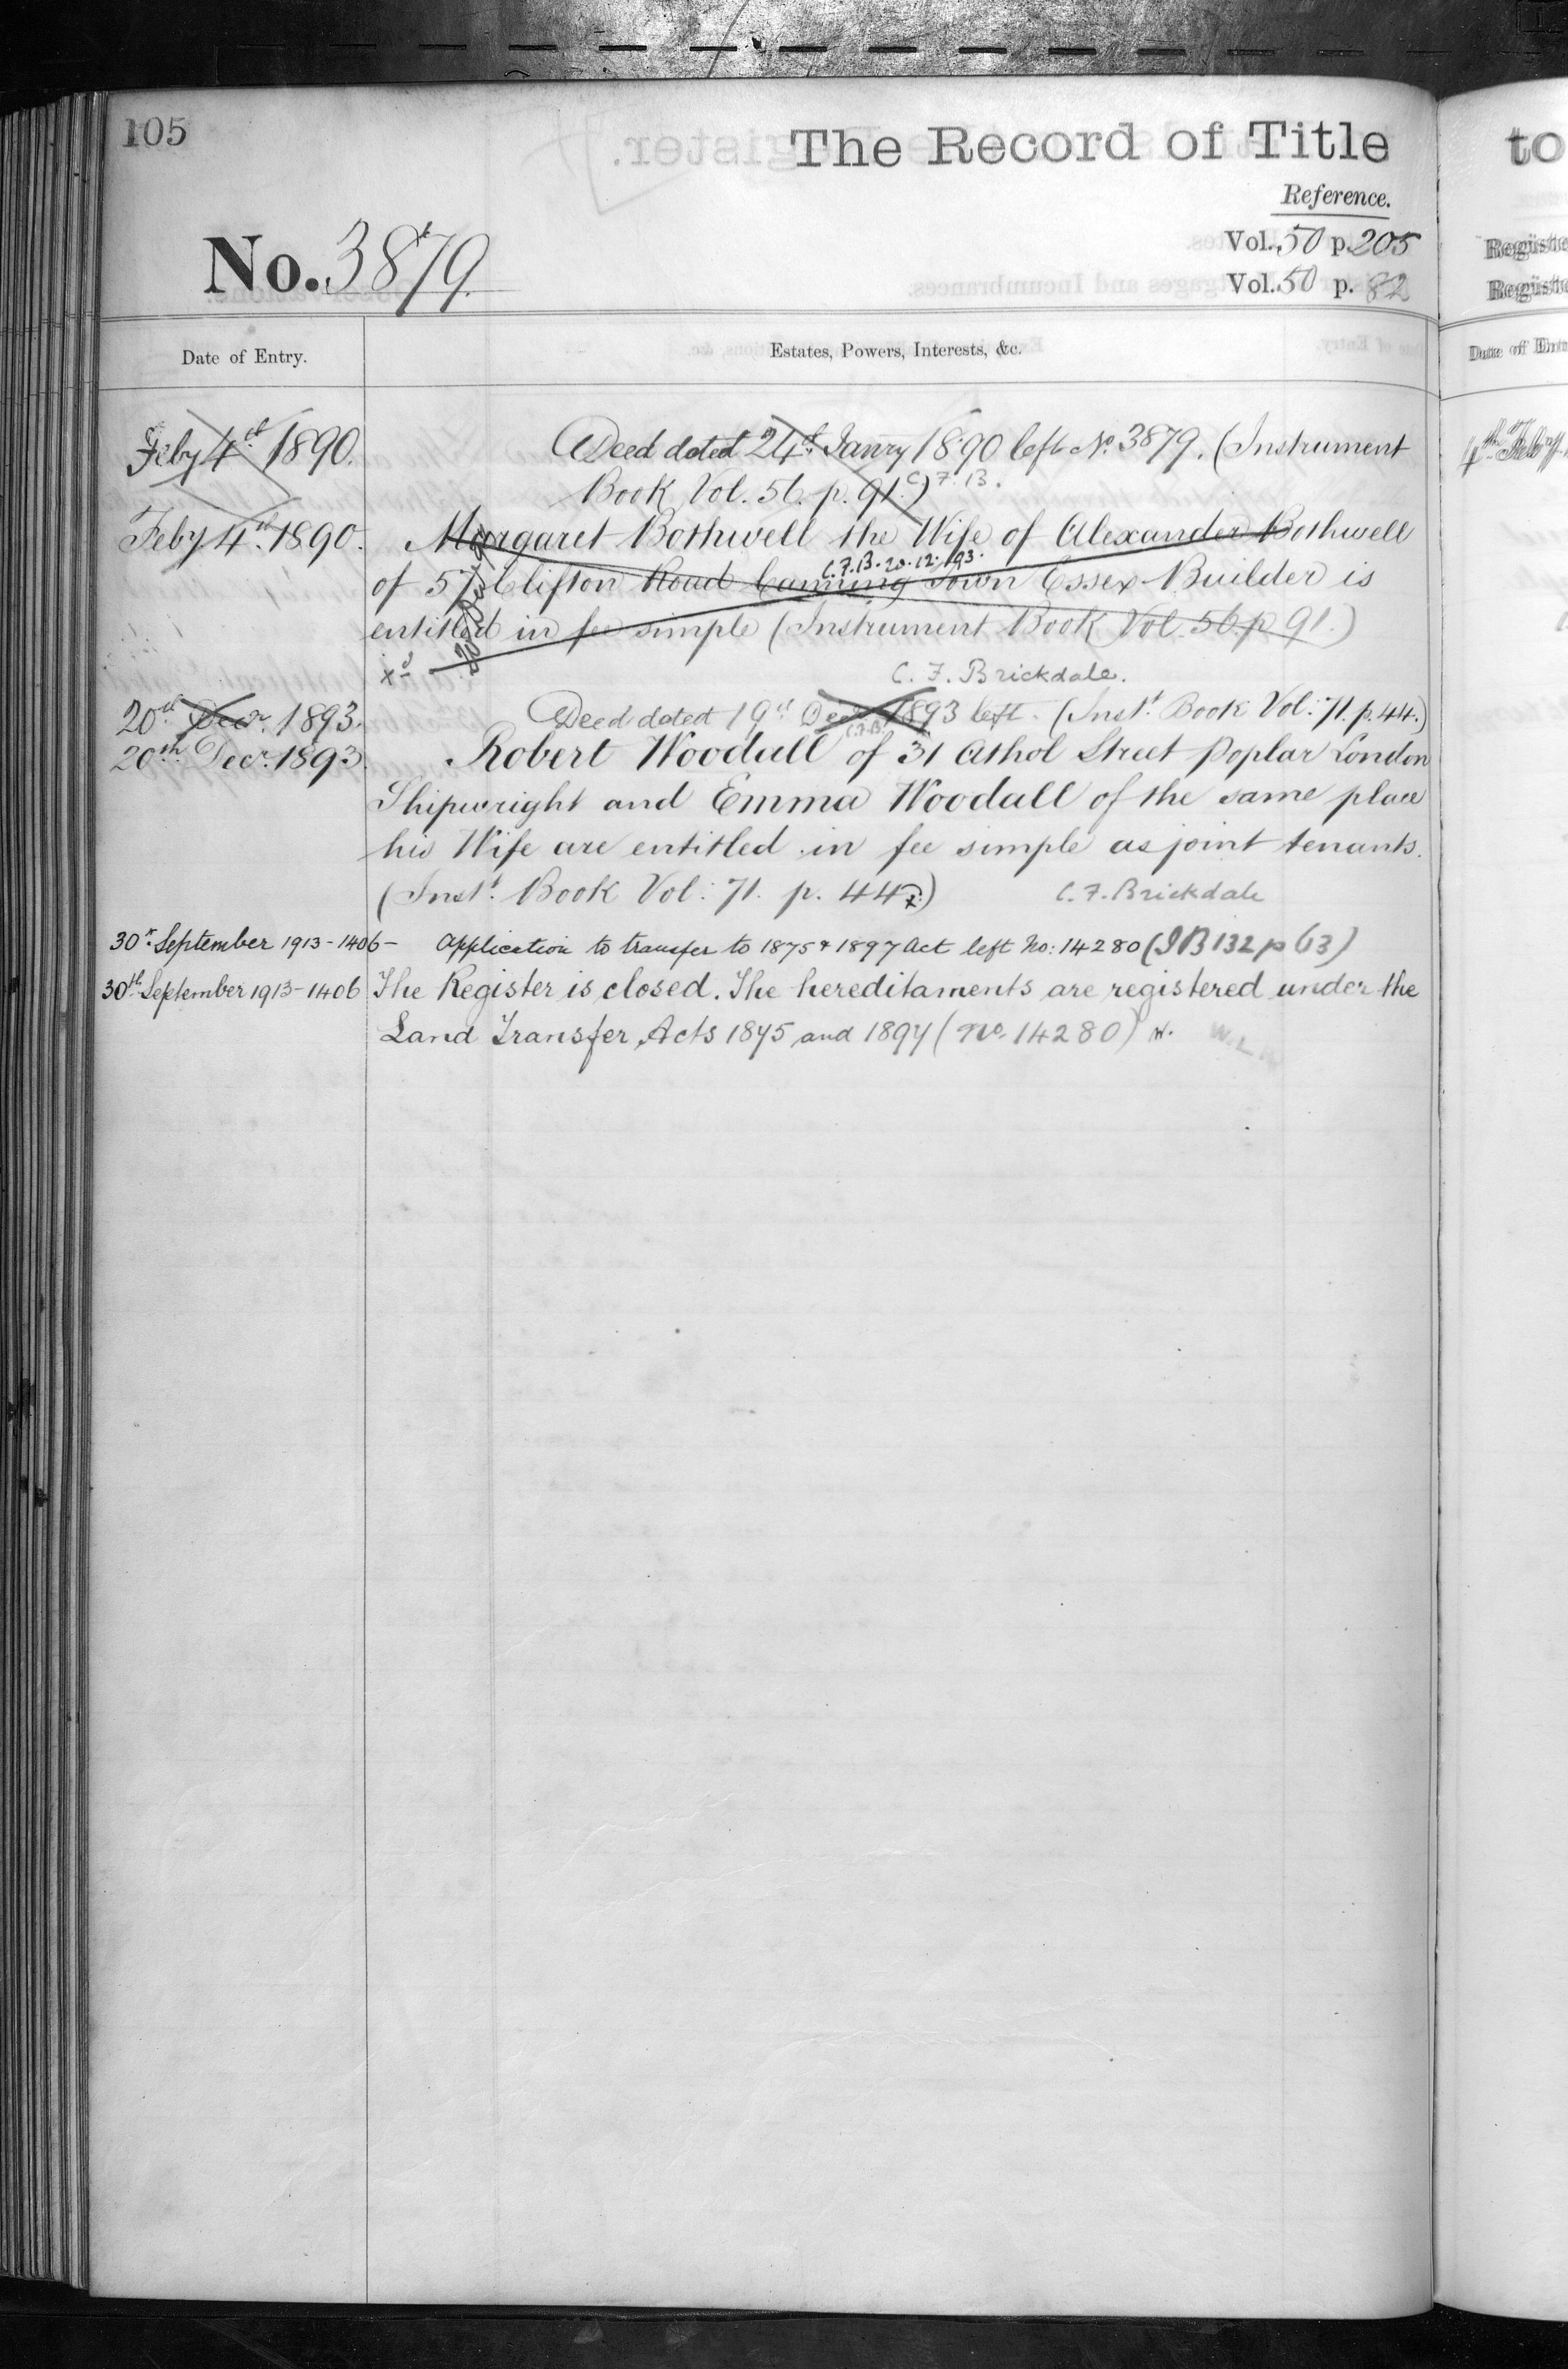 105
The Record of Title
Reference.
No. 3879.
Vol. 50 p. 205
Vol. 50 p. 82
Date of Entry.
Estates, Powers, Interests, &c.
Feby 4th 1890.
Deed dated 24th Janry 1890 left No. 3879. (Instrument
Book Vol. 56. p. 91.) C.F.B.
Feby 4th 1890.
Margaret Bothwell the Wife of Alexander Bothwell
C.F.B. 20.12.93.
of 57 Clifton Road Canning Town Essex Builder is
entitled in fee simple (Instrument Book Vol. 56. p 91.)
xd
C. F. Brickdale.
20th Decr. 1893.
Deed dated 19th Decr 1893 left. (Inst. Book Vol: 71. p. 44.)
C.F.B.
20th Decr. 1893.
Robert Woodall of 31 Athol Street Poplar London
Shipwright and Emma Woodall of the same place
his Wife are entitled in fee simple as joint tenants.
(Inst. Book Vol: 71. p. 44.)
C. F. Brickdale
30th September 1913 - 1406 -
Application to transfer to 1875 & 1897 Act left No: 14280 (IB 132 p 63)
30th September 1913 - 1406
The Register is closed. The hereditaments are registered under the
Land Transfer Acts 1875 and 1897 (No. 14280)
to